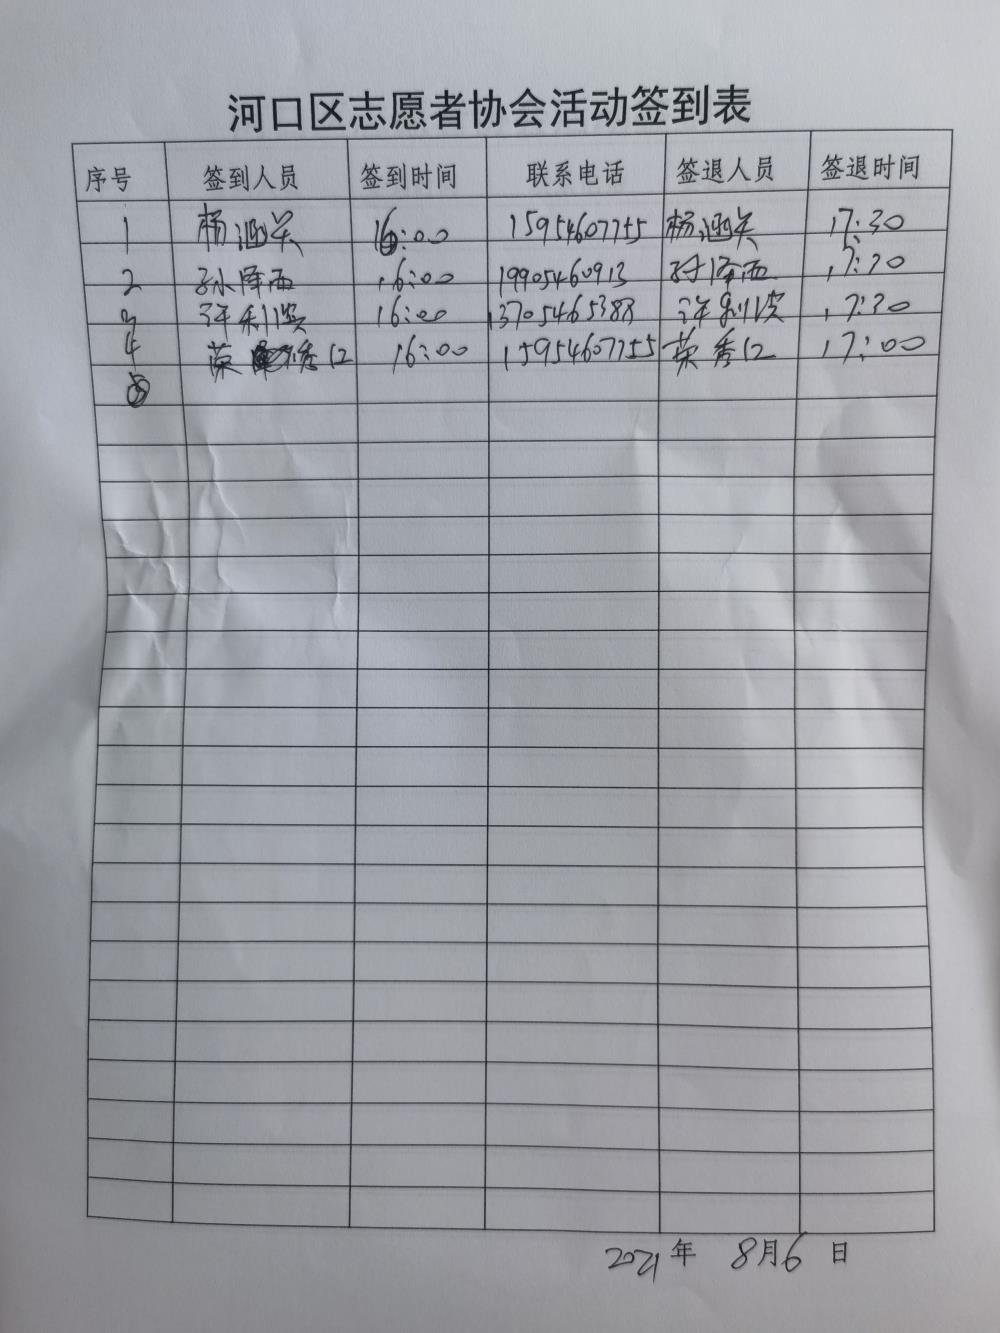 河口区志愿者协会活动签到表
序号 签到人员 签到时间 联系电话 签退人员 签退时间
1 杨涵关 16:00 15954607755 杨涵关 17:30
2 孙泽西 16:00 19905460913 孙泽西 17:30
3 许利滨 16:00 13705465388 许利滨 17:30
4 荣秀红 16:00 15954607755 荣秀红 17:00
2021年 8月6日